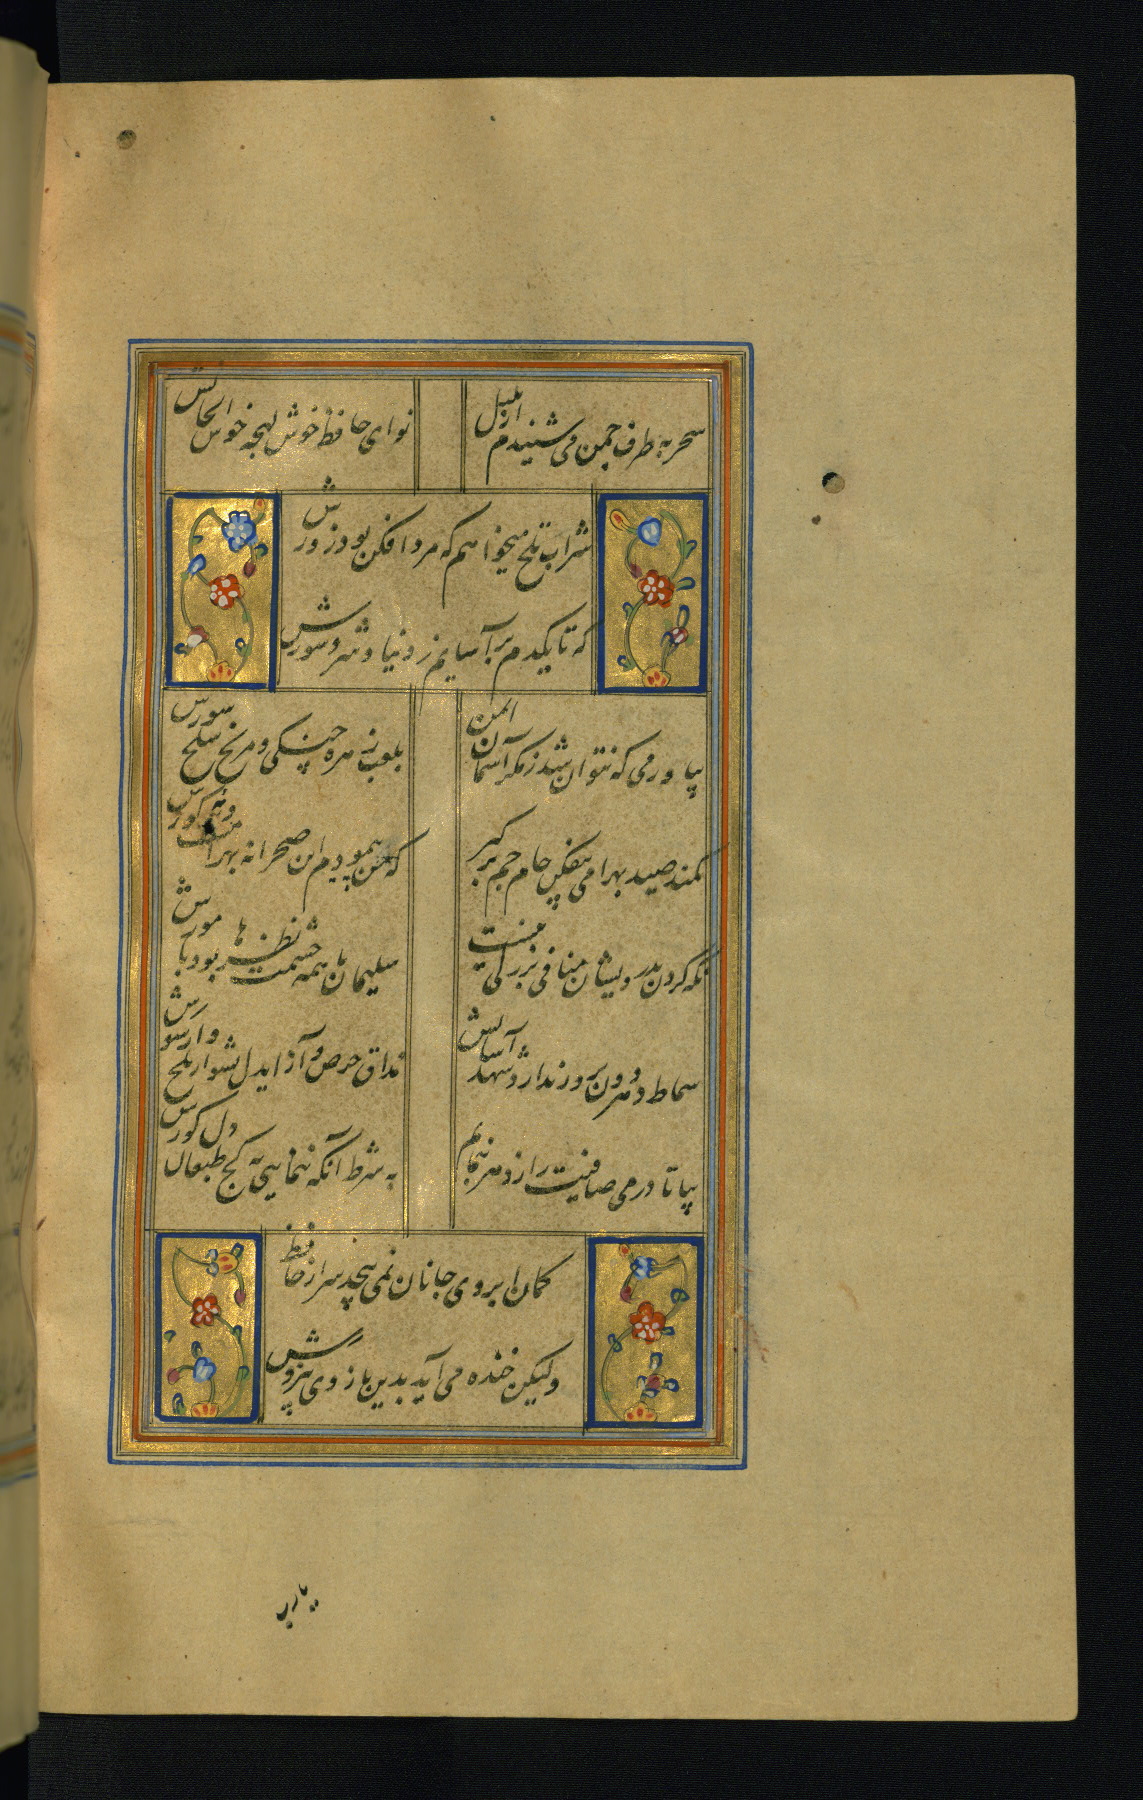 سحر به طرف چمن می شنیدم از بلبل
نوای حافظ خوش لهجه خوش الحانش
شراب تلخ میخواهم که مرد افکن بود زورش
که تا یکدم بر آسایم ز دنیا و شر و شورش
بیاور می که نتوان شد ز مکر آسمان ایمن
بلعب زهره چنگی و مریخ سلح شورش
کمند صید بهرامی بیفکن جام جم بر گیر
که من پیمودم این صحرا نه بهرامست و نه گورش
نگه کردن بدرویشان منافی بزرگی نیست
سلیمان با همه حشمت نظر ها بود با مورش
سماط دهر دون پرور ندارد شهد آسایش
مذاق حرص و آز ایدل بشو از تلخ و از شورش
بیا تا در می صافیت راز دهر بنمایم
به شرط آنکه ننمایی به کج طبعان دل کورش
کمان ابروی جانان نمی پیچد سر از حافظ
ولیکن خنده می آید بدین بازوی بی زورش